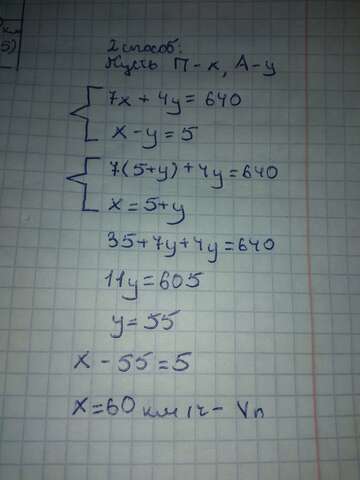 км
5)
2 способ:
Пусть П - х, А - у
7x + 4y = 640
x - y = 5
7(5+y) + 4y = 640
x = 5+y
35+7y+4y=640
11y=605
y=55
x - 55 = 5
x=60 км/ч - Vп